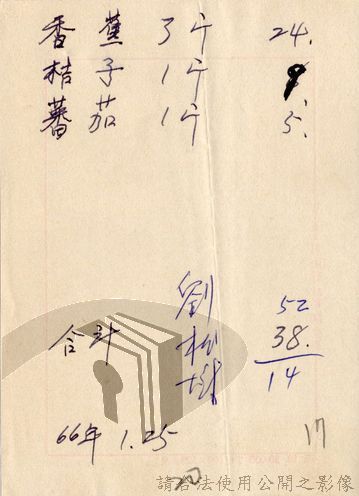 香蕉 3斤 24.
桔子 1斤 9.
蕃茄 1斤 5.
劉
52
合計 38.
14
66年 1.25
17
請合法使用公開之影像